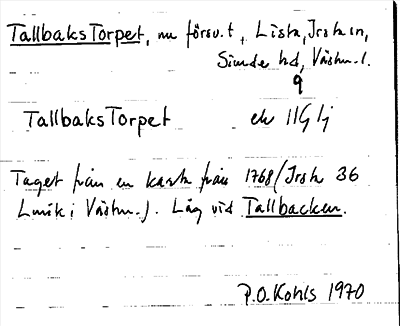 TallbaksTorpet, nu försv.t, Lista, Irsta sn,
Siende hd, Västm. l.
9
TallbaksTorpet ek 11G 1j
Taget från en karta från 1768 (Irsta 36
Lmk i Västm.). Låg vid Tallbacken.
P.O. Kohls 1970